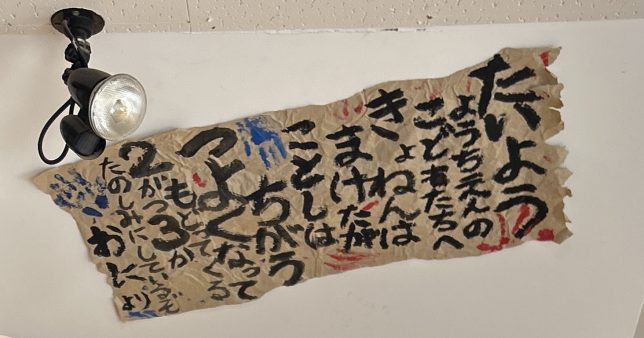 たいよう
ようちえんの
こどもたちへ
きょねんは
まけたが
ことしは
ちがう
つよくなって
もどってくる
2がつ3か
たのしみにしているぞ
おにより